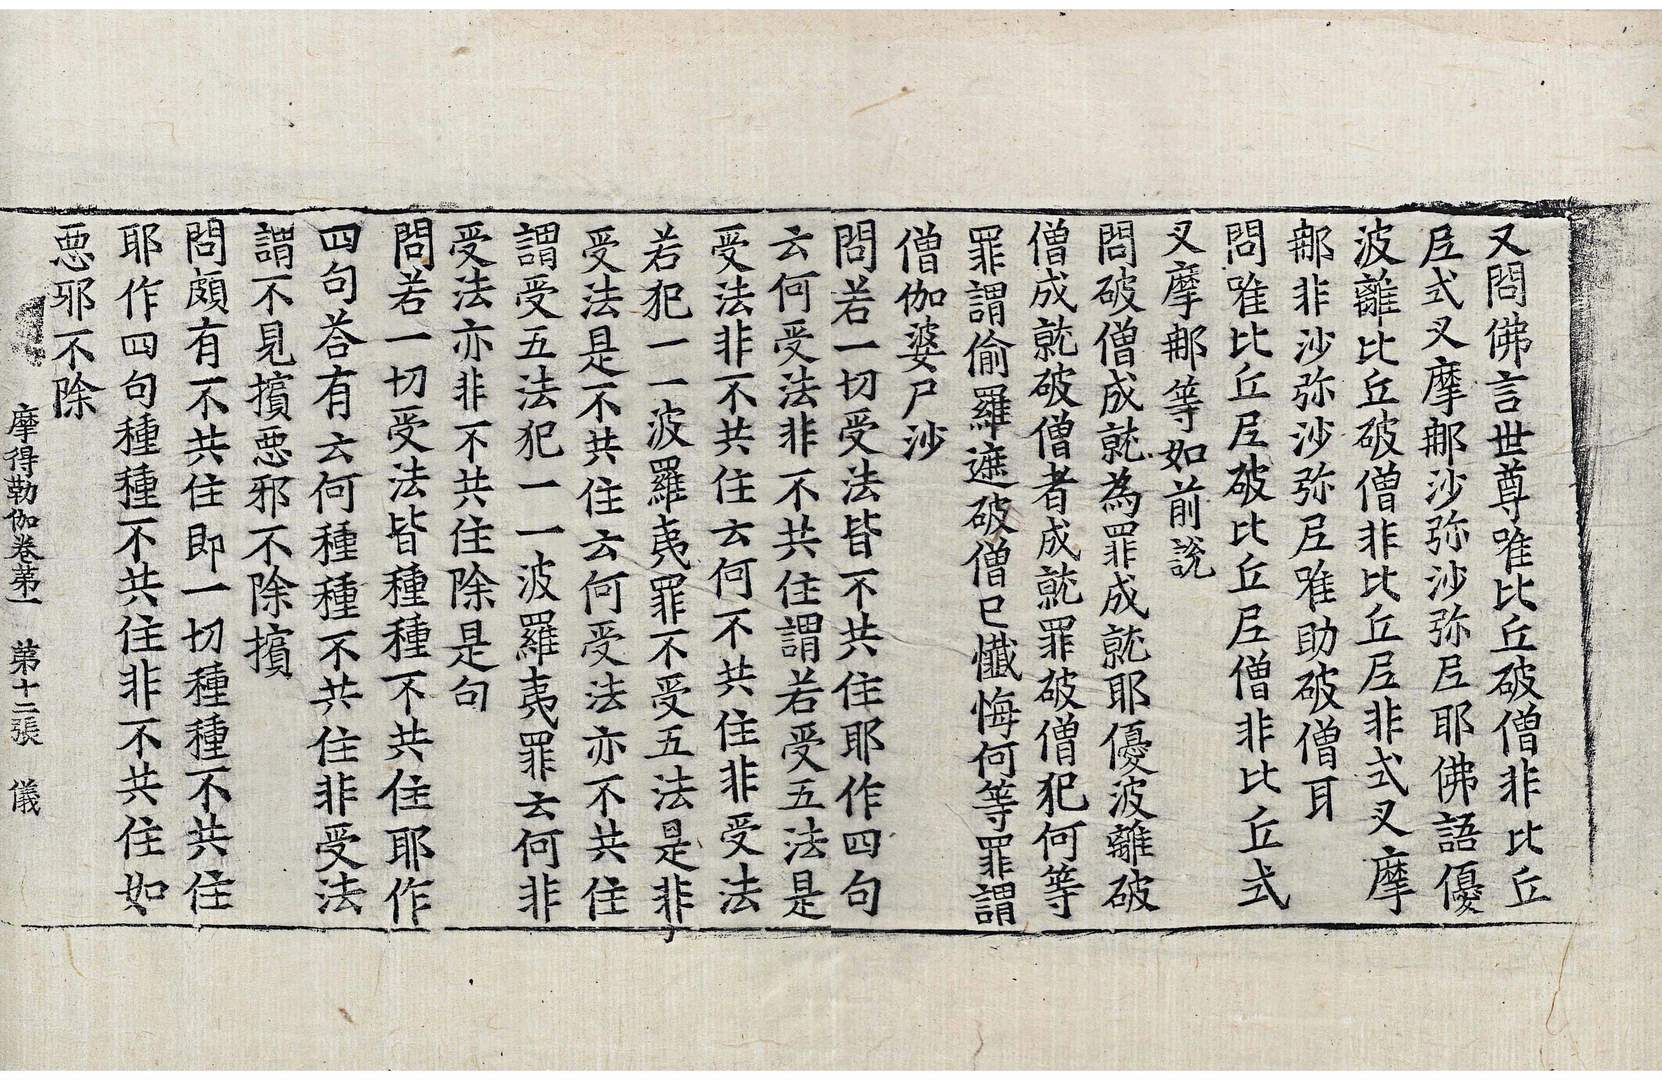 又問佛言世尊唯比丘破僧非比丘
尼式叉摩那沙弥沙弥尼耶佛語優
波離比丘破僧非比丘尼非式叉摩
那非沙弥沙弥尼唯助破僧耳
問唯比丘尼破比丘尼僧非比丘式
叉摩那等如前説
問破僧成就為罪成就耶優波離破
僧成就破僧者成就罪破僧犯何等
罪謂偷羅遮破僧已懺悔何等罪謂
僧伽婆尸沙
問若一切受法皆不共住耶作四句
云何受法非不共住謂若受五法是
受法非不共住云何不共住非受法
若犯一一波羅夷罪不受五法是非
受法是不共住云何受法亦不共住
謂受五法犯一一波羅夷罪云何非
受法亦非不共住除是句
問若一切受法皆種種不共住耶作
四句荅有云何種種不共住非受法
謂不見擯惡邪不除擯
問頗有不共住即一切種種不共住
耶作四句種種不共住非不共住如
惡邪不除
摩得勒伽卷第一　第十二張　儀